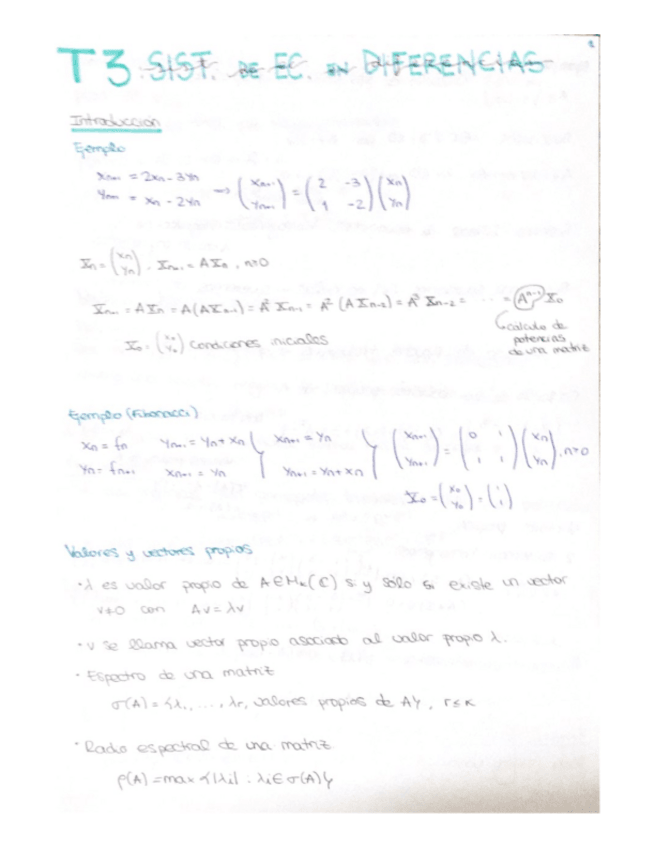 T3. SIST. DE EC. EN DIFERENCIAS
Introducción
Ejemplo
xₙ₊₁ = 2xₙ - 3yₙ
yₙ₊₁ = xₙ - 2yₙ ⟹ (xₙ₊₁ yₙ₊₁) = (2 -3 1 -2)(xₙ yₙ)
Xₙ = (xₙ yₙ), Xₙ₊₁ = AXₙ, n≥0
Xₙ₊₁ = AXₙ = A(AXₙ₋₁) = A² Xₙ₋₁ = A² (AXₙ₋₂) = A³ Xₙ₋₂ = ... = Aⁿ⁺¹ X₀
cálculo de
potencias
de una matriz
X₀ = (x₀ y₀) condiciones iniciales
Ejemplo (Fibonacci)
xₙ = fₙ yₙ₊₁ = yₙ + xₙ } xₙ₊₁ = yₙ } (xₙ₊₁ yₙ₊₁) = (0 1 1 1)(xₙ yₙ), n≥0
yₙ = fₙ₊₁ xₙ₊₁ = yₙ yₙ₊₁ = yₙ + xₙ
X₀ = (x₀ y₀) = (1 1)
Valores y vectores propios
· λ es valor propio de A∈Mₖ(C) si y sólo si existe un vector
v≠0 con Av = λv
· v se llama vector propio asociado al valor propio λ.
· Espectro de una matriz
σ(A) = {λ₁, ..., λr, valores propios de A}, r≤k
· Radio espectral de una matriz
ρ(A) = max {|λᵢ| : λᵢ ∈ σ(A)}